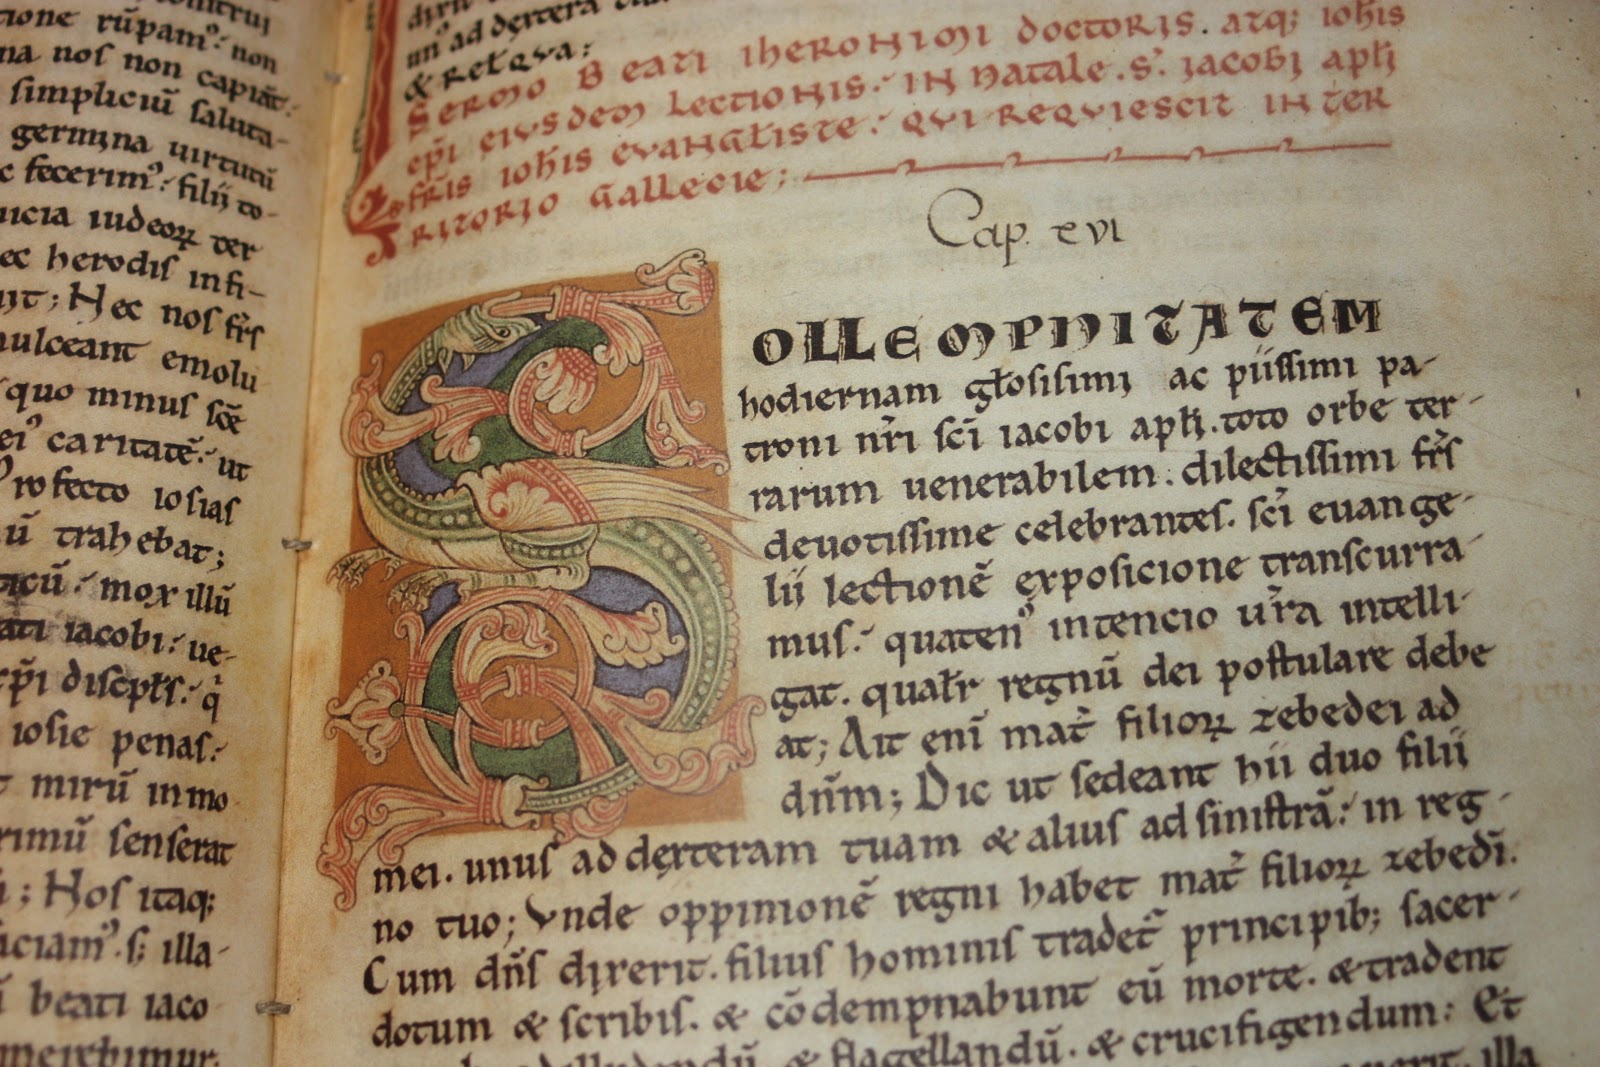 tione rūpam᷒: non
na nos non capiat:
simpliciū saluta-
germina uirtutū
c fecerim᷒: filii to-
uicia iudeoꝝ ter
ec herodis infi-
Hec nos fr̄s
mulceant emolu
quo minus scē
ei᷒ caritatē: ut
Profecto iosias
ū trahebat;
ticū: mox illū
ati iacobi: ue-
rp̄i discipłs: q̄
iosie penas:
t mirū inmo
rimū senserat
; Hos itaq;
aciam᷒. s; illa-
beati iaco
un᷒ ad dextera
& relqva:
Sermo Beati iheronimi doctoris. atq; ioħis
ep̄i eiusdem lectionis: in natale. s̄. jacobi apłi
fr̄is ioħis evangłiste: qvi reqviescit in ter
ritorio gallecie;
Cap. xvi
SOLLEMPNITATEM
hodiernam głosisimi ac piissimi pa-
troni nr̄i sc̄i iacobi apłi. toto orbe ter-
rarum uenerabilem: dilectissimi fr̄s
deuotissime celebrantes. sc̄i euange-
lii lectionē exposicione transcurra-
mus: quaten᷒ intencio ur̄a intelli-
gat. qualr̄ regnū dei postulare debe
at; Ait eni̅ mat̄ filioꝝ zebedei ad
dn̄m; Dic ut sedeant hii duo filii
mei. unus ad dexteram tuam & alius ad sinistrā: in reg-
no tuo; Vnde oppinionē regni habet mat̄ filioꝝ zebedi̅.
Cum dn̄s dixerit. filius hominis tradet̄ principib; sacer-
dotum & scribis. & cōdempnabunt eū morte. & tradent
& flagellandū. & crucifigendum: Et
illa